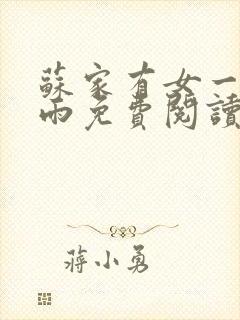 蘇家有女一
兩免費閱讀
蔣小勇